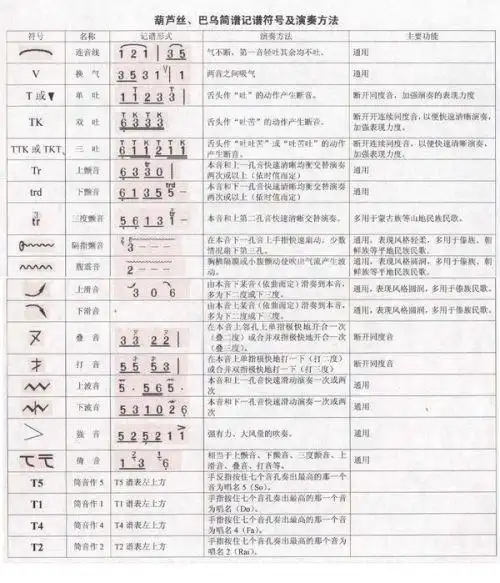 葫芦丝、巴乌简谱记谱符号及演奏方法
符号 名称 记谱形式 演奏方法 主要功能
连音线 1 2 1 | 3 5 气不断，第一音轻吐其余均不吐。 通用
V 换气 3 5 3 1 V | 1 两音之间吸气 通用
T 或▼ 单吐 1 1 2 3 3 舌头作“吐”的动作产生断音。 断开同度音，加强演奏的表现力度
TK 双吐 T K T K 6 3 3 3 舌头作“吐苦”的动作产生断音。 断开连续同度音，以便快速清晰演奏，
加强表现力度。
TTK 或 TKT 三吐 6 1 1 2 1 1 舌头作“吐吐苦”或“吐苦吐”的动作
产生断音。 断开连续同度音，以便快速清晰演奏，
加强表现力度。
Tr 上颤音 6 3 3 0 | 本音和上一孔音快速清晰均衡交替演奏
两次或以上（依时值而定） 通用
trd 下颤音 6 1 3 5 5 本音和下一孔音快速清晰均衡交替演奏
两次或以上（依时值而定） 通用
tr 三度颤音 5 6 1 3 1 - 本音和上第二孔音快速清晰交替演奏。 多用于蒙古族等山地民族民歌。
隔指颤音 3 - - - 在本音下一孔音上手指快速扇动，少数
情况扇下第三孔。 通用，表现风格轻柔，多用于傣族、朝
鲜族等平地民族民歌。
腹震音 2 - - - 胸横隔膜或小腹颤动使吹出气流产生波
动。 通用，表现风格圆润，多用于傣族、朝
鲜族等平地民族民歌。
上滑音 3 0 6 由本音下某音（依曲而定）滑奏到本音，
多为下二度或下三度。 通用，表现风格圆润，多用于傣族民歌。
下滑音 由本音上某音（依曲而定）滑奏到本音，
多为下二度或下三度。
叠音 3 3 2 2 | 在本音上各孔上单指极快地开合一次
（叠二度）或合并双指极快地开合一次
（叠三度）。 断开同度音
打音 5 5 5 3 | 在本音上单指极快地打一下（打二度）
或合并双指极快地打一下（打三度） 断开同度音
上波音 5 · 5 6 5 · 本音和上一孔音快速滑动演奏一次或两
次 通用
下波音 5 3 1 0 2 6 本音和下一孔音快速滑动演奏一次或两
次 通用
强音 5 2 5 2 1 1 强有力、大风量的吹奏。 通用
倚音 1 3 1 6 相当于上颤音、下颤音、三度颤音、上
滑音、叠音、打音等。 通用
T5 筒音作 5 T5 谱表左上方 手反指按住七个音孔奏出最高的那一个
音为唱名 5（So）。
T1 筒音作 1 T1 谱表左上方 手指按住七个音孔奏出最高的那一个音
为唱名（Do）。
T4 筒音作 4 T4 谱表左上方 手指按住七个音孔奏出最高的那一个音
为唱名 4（Fa）。
T2 筒音作 2 T2 谱表左上方 手指按住七个音孔奏出最高的那个音为
唱名 2（Rai）。